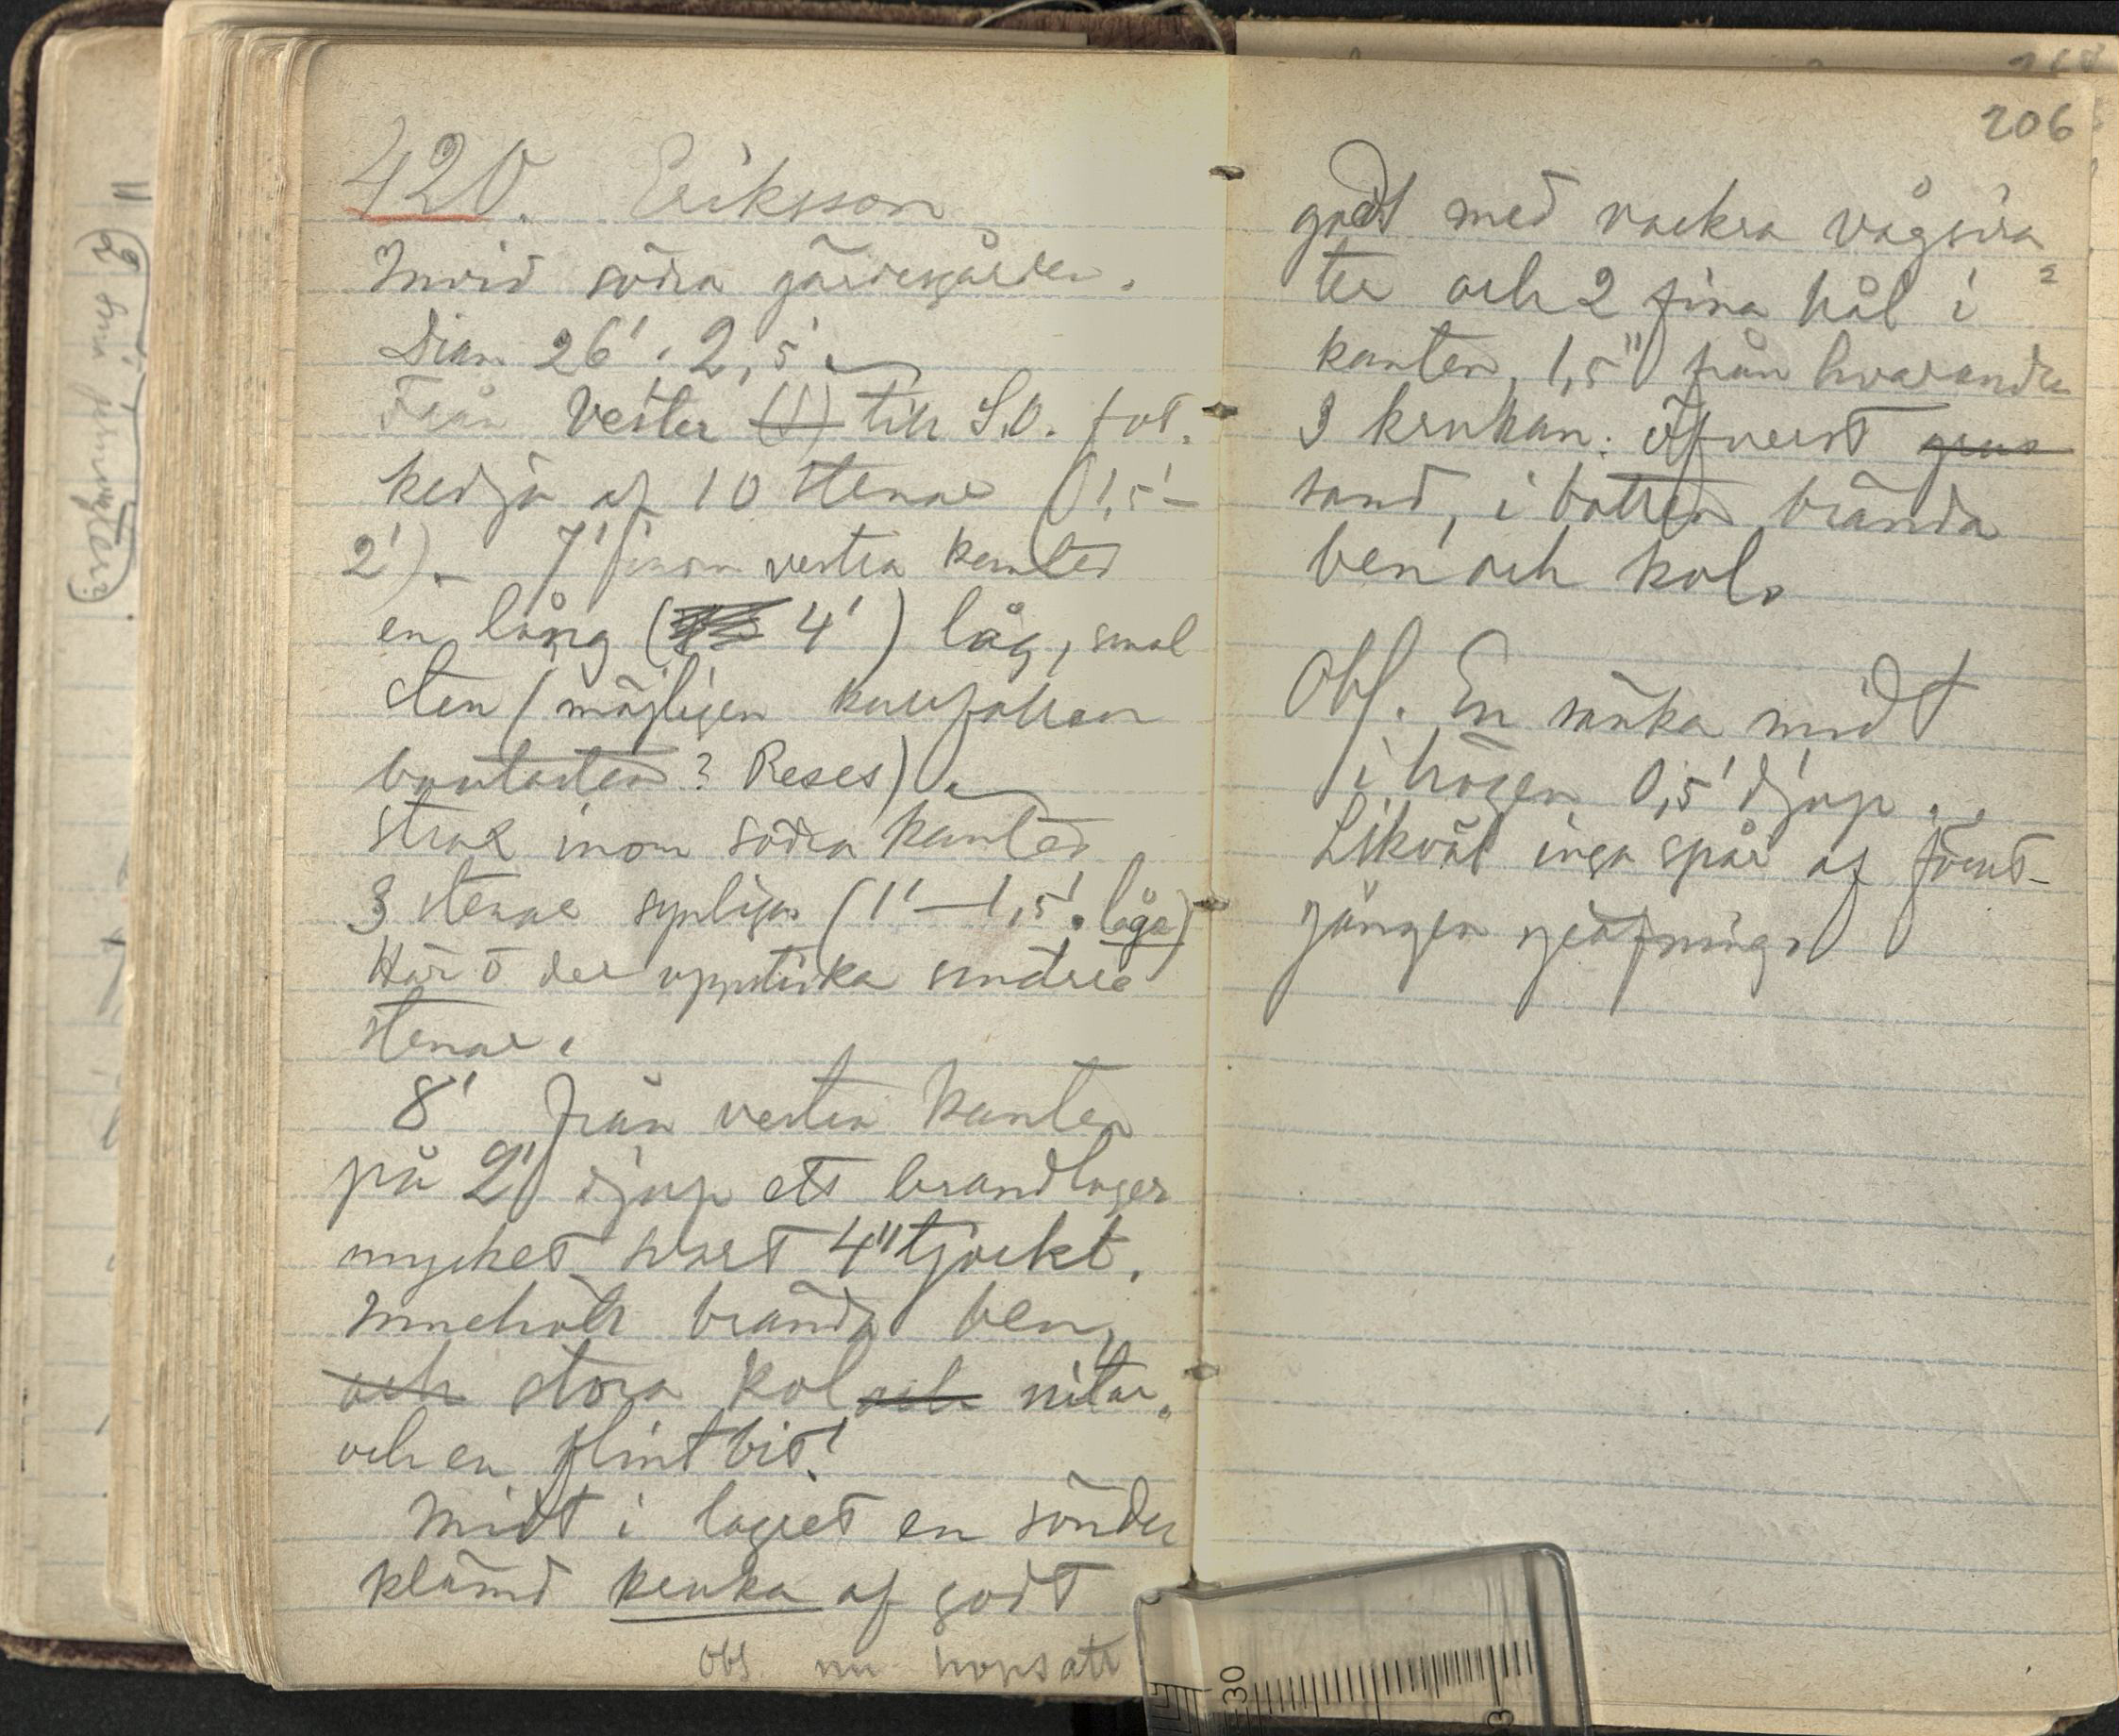 420. Eriksson
Invid södra gärdesgården.
Diam 26'. 2,5'.
Från Vester (S) till S.O. fot.
kedja af 10 stenar (1,5'–
2'). 7' inom vestra kanten
en lång (4') låg, smal
sten (möjligen kullfallen
bautasten? Reses).
strax inom södra kanten
3 stenar synliga (1'–1,5'. låga)
Här o der uppsticka smärre
stenar.
8' från vestra kanten
på 2' djup ett brandlager
mycket svart 4" tjockt.
Innehöll brända ben,
och stora kol och nitar.
och en flintbit!
Midt i lagret en sönder
klämd kruka af godt
obs. nu hopsatt
206
godt med vackra vågsira
ter och 2 fina hål i
kanten, 1,5" från hvarandra
I krukan: Öfverst grus
sand, i botten brända
ben och kol.
Obs. En sänka midt
i högen 0,5' djup.
Likväl inga spår af föreut-
gången gräfning.